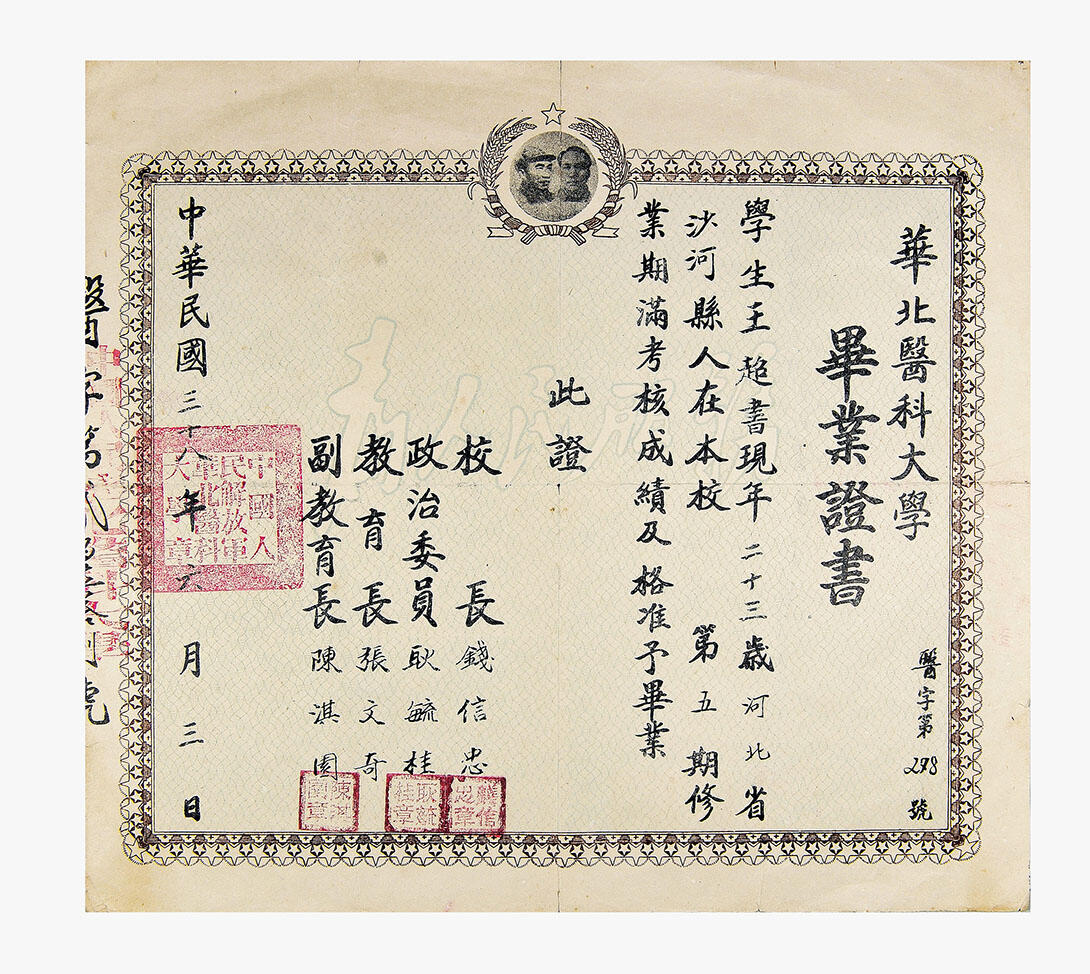 華北醫科大學
畢業證書
醫字第298號
學生王超書現年二十三歲河北省
沙河縣人在本校第五期修
業期滿考核成績及格准予畢業
此證
校長錢信忠
政治委員耿毓桂
教育長張文奇
副教育長陳淇園
中華民國三十八年六月三日
中國人
民解放軍
華北醫科
大學章
醫字第貳
號